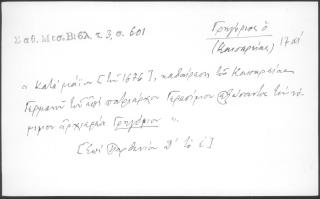 Σαθ. Μεσ. Βιβλ. τ. 3, σ. 601
Γρηγόριος ὁ
(Καισαρείας) 17 αἰ
"Κατὰ μάϊον [τοῦ 1676], καθαίρεση τοῦ Καισαρείας
Γερμανοῦ τοῦ ἐπὶ πατριάρχου Γερασίμου τὸν νό-
μιμον ἀρχιερέα Γρηγόριον".
[Ἐπὶ Παρθενίου Δ' τὸ